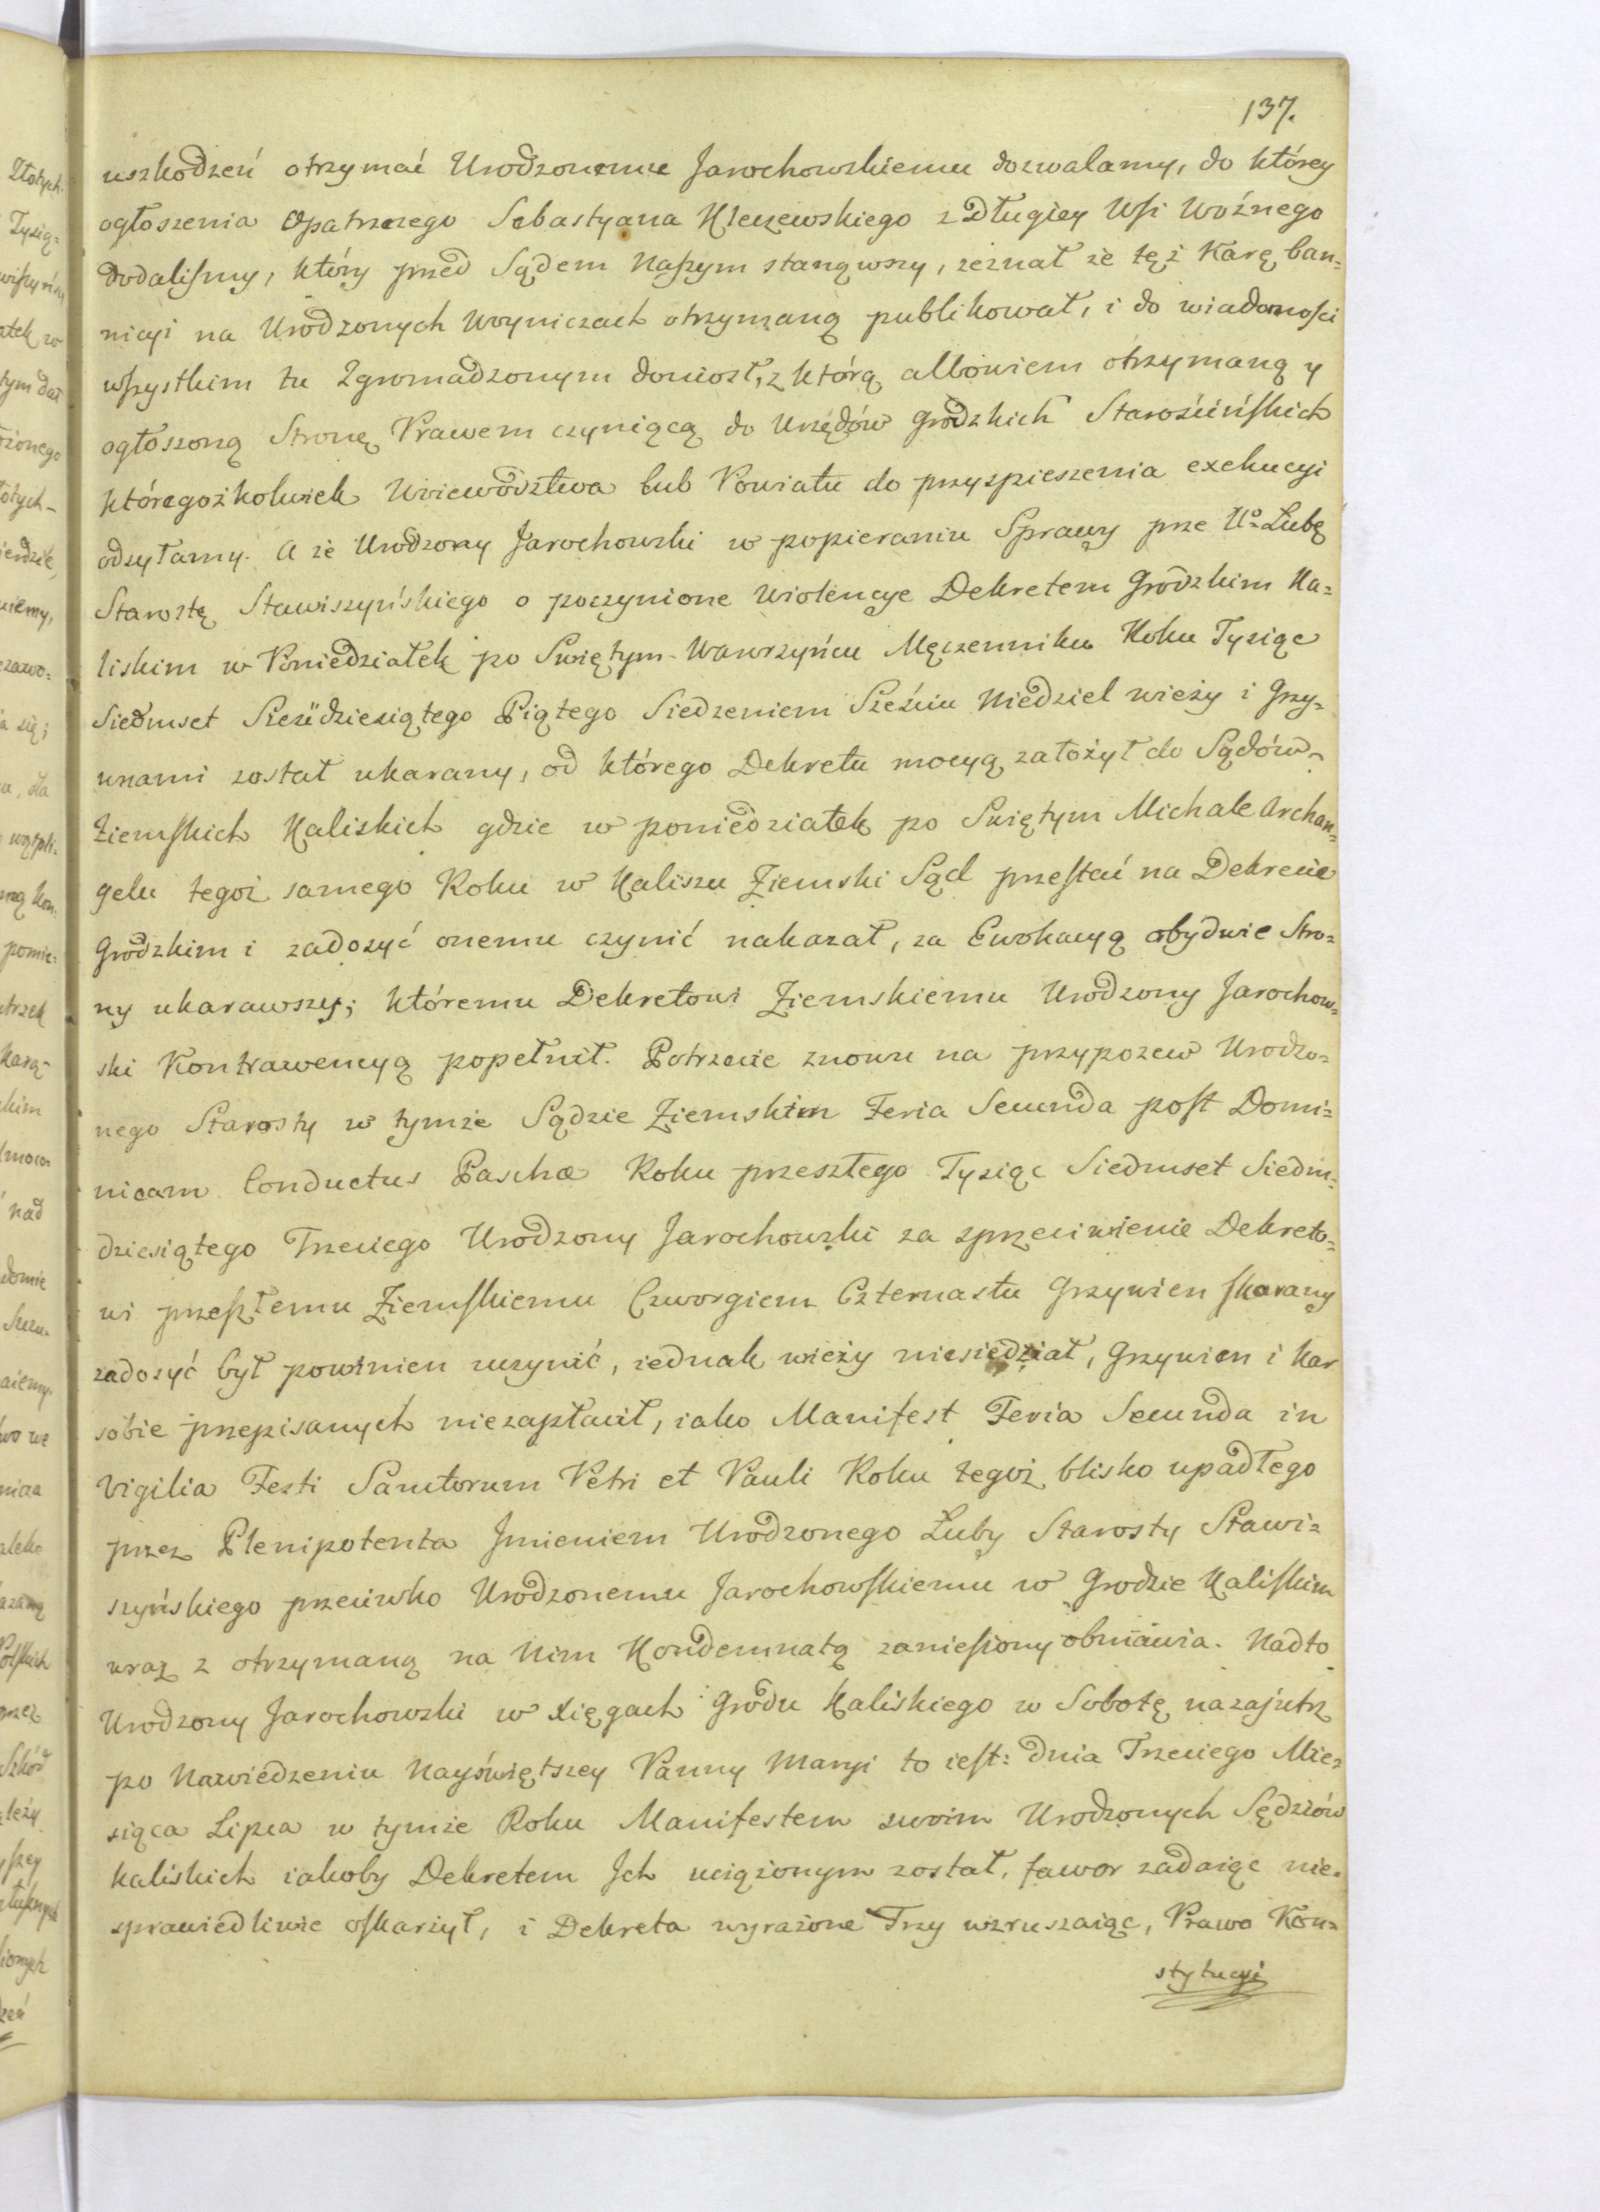 137.
uszkodzeń otrzymać Urodzonemu Jarochowskiemu dozwalamy, do którey
ogłoszenia Opatrznego Sebastyana Kleczewskiego z Długiey Wsi Woźnego
dodaliſmy, który przed Sądem Naſzym stanąwszy, zeznał że tęż Karę ban=
nicyi na Urodzonych Woyniczach otrzymaną publikował, i do wiadomości
wſzystkim tu Zgromadzonym doniosł, z którą albowiem otrzymaną y
ogłoszoną Stronę Prawem czyniącą do Urzędów Grodzkich Starościńſkich
któregożkolwiek Woiewództwa lub Powiatu do przyspieszenia exekucyi
odsyłamy. A że Urodzony Jarochowski w popieraniu Sprawy prze U° Lubę
Starostę Stawiszyńskiego o poczynione Wiolencye Dekretem Grodzkim Ka=
liskim w Poniedziałek po Swiętym Wawrzyńcu Męczenniku Roku Tysiąc
Siedmset Sześćdziesiątego Piątego Siedzeniem Sześciu Niedziel wieży i Grzy=
wnami został ukarany, od którego Dekretu mocyą założył do Sądów
Ziemſkich Kaliskich gdzie w poniedziałek po Swiętym Michale Archan=
gelu tegoż samego Roku w Kaliszu Ziemski Sąd przeſtać na Dekrecie
Grodzkim i zadosyć onemu czynić nakazał, za Ewokacyą obydwie Stro=
ny ukarawszy; któremu Dekretowi Ziemskiemu Urodzony Jarochow=
ski Kontrawencyą popełnił. Potrzecie znowu na przypozew Urodzo=
nego Starosty w tymże Sądzie Ziemskim Feria Secunda poſt Domi=
nicam Conductus Paschæ Roku przeszłego Tysiąc Siedmset Siedm=
dziesiątego Trzeciego Urodzony Jarochowski za zprzeciwienie Dekreto=
wi przeſzłemu Ziemſkiemu Czworgiem Czternastu Grzywien ſkarany
zadosyć był powinien uczynić, iednak wieży niesiedział, Grzywien i kar
sobie przepisanych niezapłacił, iako Manifest Feria Secunda in
Vigilia Festi Sanctorum Petri et Pauli Roku tegoż blisko upadłego
przez Plenipotenta Jmieniem Urodzonego Luby Starosty Stawi=
szyńskiego przeciwko Urodzonemu Jarochowſkiemu w Grodzie Kaliſkim
wraz z otrzymaną na Nim Kondemnatą zanieſiony obmawia. Nadto
Urodzony Jarochowski w Xięgach Grodu Kaliskiego w Sobotę nazajutrz
po Nawiedzeniu Nayświętszey Panny Maryi to ieſt: dnia Trzeciego Mie=
siąca Lipca w tymże Roku Manifestem swoim Urodzonych Sędziów
Kaliskich iakoby Dekretem Jch uciążonym został, fawor zadaiąc nie=
sprawiedliwie oſkarżył, i Dekreta wyrażone Trzy wzruszaiąc, Prawo Kon=
stytucyi